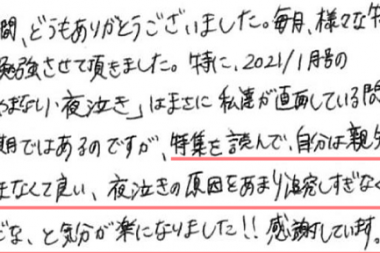 間、どうもありがとうございました。毎月、様々な
勉強させて頂きました。特に、2021/1月号の
まない夜泣き」はまさに私達が直面している問
期ではあるのですが、特集を読んで、自分は親
なくて良い、夜泣きの原因をあまり追究しすぎなく
な、と気分が楽になりました!!感謝しています。